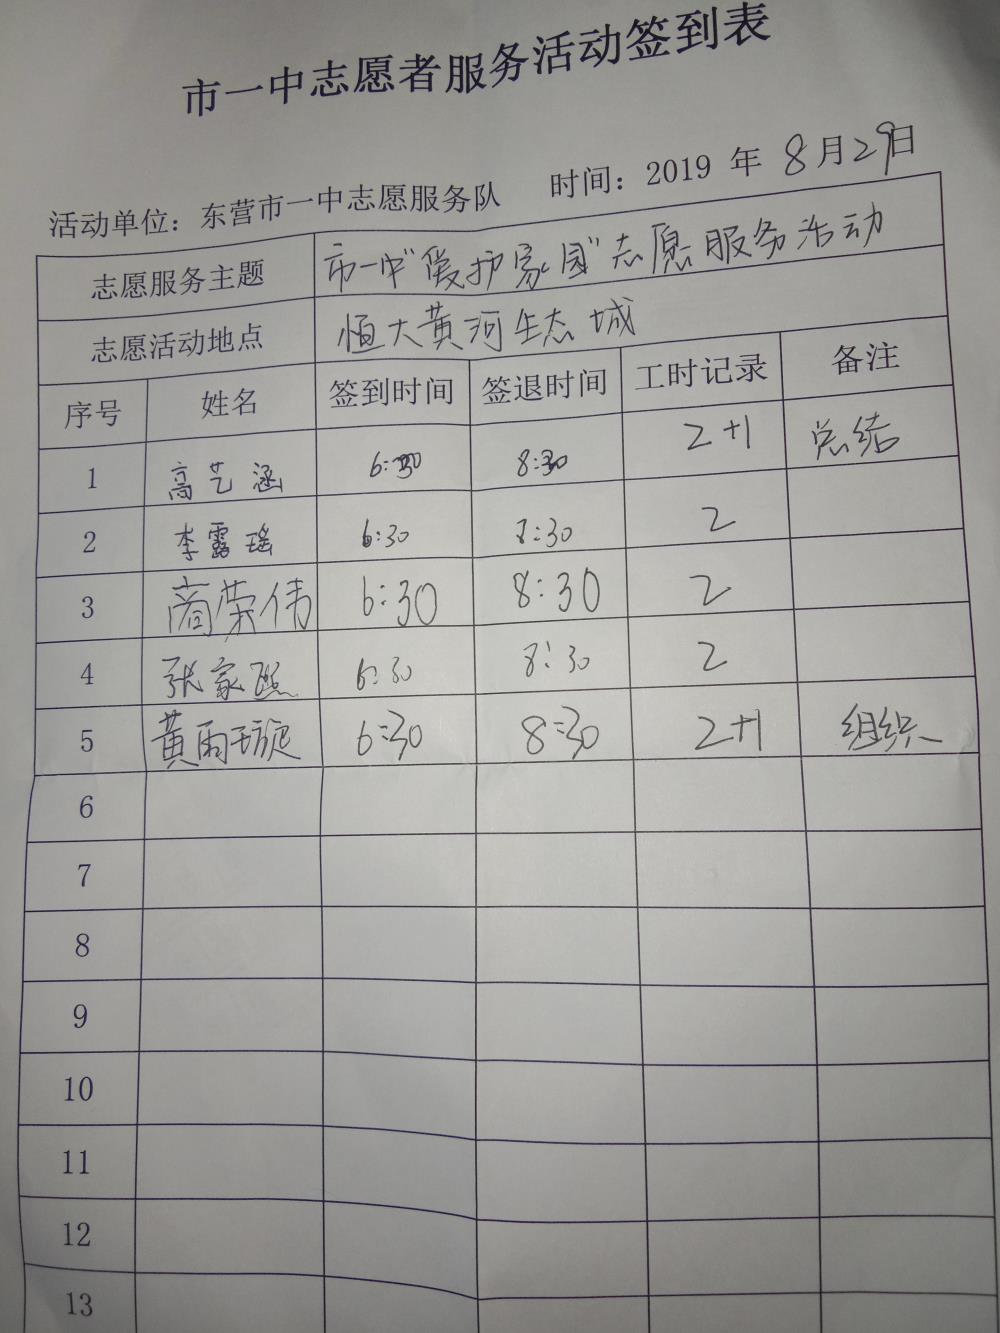 市一中志愿者服务活动签到表
活动单位：东营市一中志愿服务队 时间：2019 年 8 月 29 日
志愿服务主题 市一中“爱护家园”志愿服务活动
志愿活动地点 恒大黄河生态城
序号 姓名 签到时间 签退时间 工时记录 备注
1 高艺涵 6:30 8:30 2+1 总结
2 李露瑶 6:30 8:30 2
3 商荣伟 6:30 8:30 2
4 张家熙 6:30 8:30 2
5 黄雨璇 6:30 8:30 2+1 组织
6
7
8
9
10
11
12
13